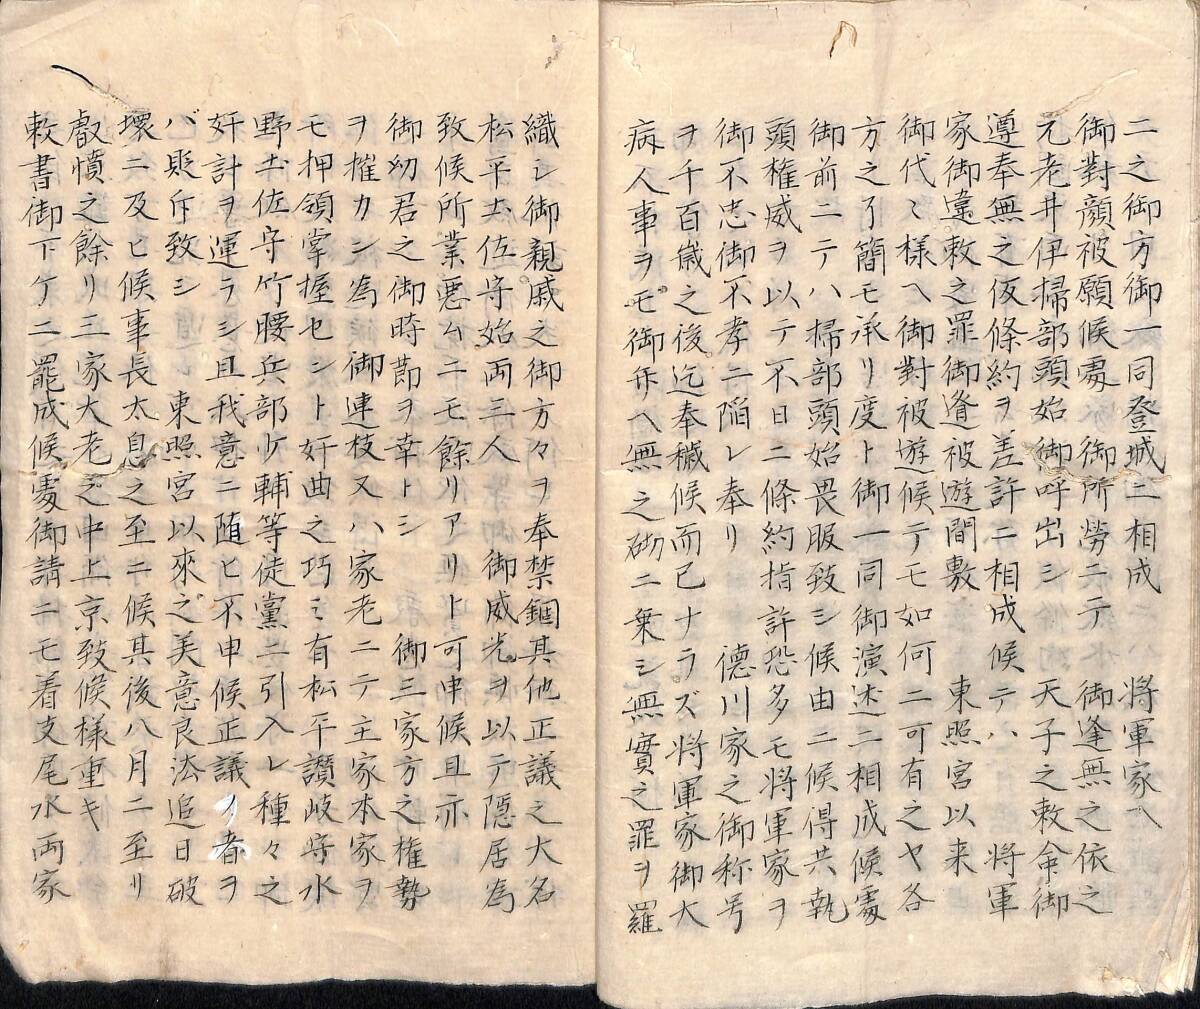 二之御方御一同登城ニ相成　将軍家ヘ
御對顔被願候處御所勞ニテ　御逢無之依之
元老井伊掃部頭始御呼出シ　天子之敕命御
遵奉無之仮條約ヲ差許ニ相成候テハ　将軍
家御違敕之罪御逢被遊間敷　東照宮以来
御代々様ヘ御對被遊候テモ如何ニ可有之ヤ各
方之了簡モ承リ度ト御一同御演述ニ相成候處
御前ニテハ掃部頭始畏服致シ候由ニ候得共執
頭権威ヲ以テ不日ニ條約指許恐多モ将軍家ヲ
御不忠御不孝ニ陥レ奉リ　徳川家之御称号
ヲ千百歳之後迄奉穢候而已ナラズ将軍家御大
病人事ヲモ御弁ヘ無之砌ニ乗シ無實之罪ヲ羅
織シ御親戚之御方々ヲ奉禁錮其他正議之大名
松平土佐守始両三人　御威光ヲ以テ隠居為
致候所業悪ムニモ餘リアリト可申候且亦
御幼君之御時節ヲ幸トシ　御三家方之権勢
ヲ摧カン為御連枝又ハ家老ニテ主家本家ヲ
モ押領掌握セント奸曲之巧ミ有松平讃岐守水
野土佐守竹腰兵部少輔等徒黨ニ引入レ種々之
奸計ヲ運ラシ且我意ニ随ヒ不申候正議ノ者ヲ
バ貶斥致シ　東照宮以來之美意良法追日破
壊ニ及ヒ候事長太息之至ニ候其後八月ニ至リ
叡憤之餘リ三家大老之中上京致候様重キ
敕書御下ケニ罷成候處御請ニモ着支尾水両家